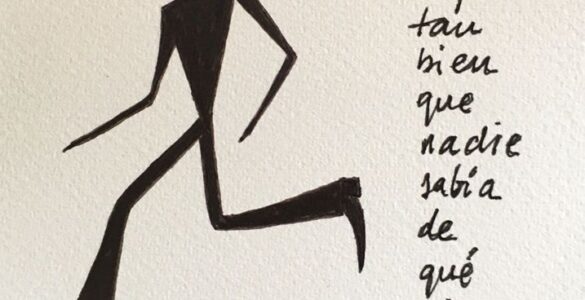 tan
bien
que
nadie
sabía
de
qué